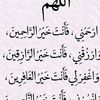 اللهم
ارْحَمْنِي , فَأَنْتَ خَيْرُ الرَّاحِمِينَ ,
وَارْزُقْنِي , فَأَنْتَ خَيْرُ الرَّازِقِينَ ,
وَاغْفِرْ لِي فَأَنْتَ خَيْرُ الْغَافِرِينَ ,